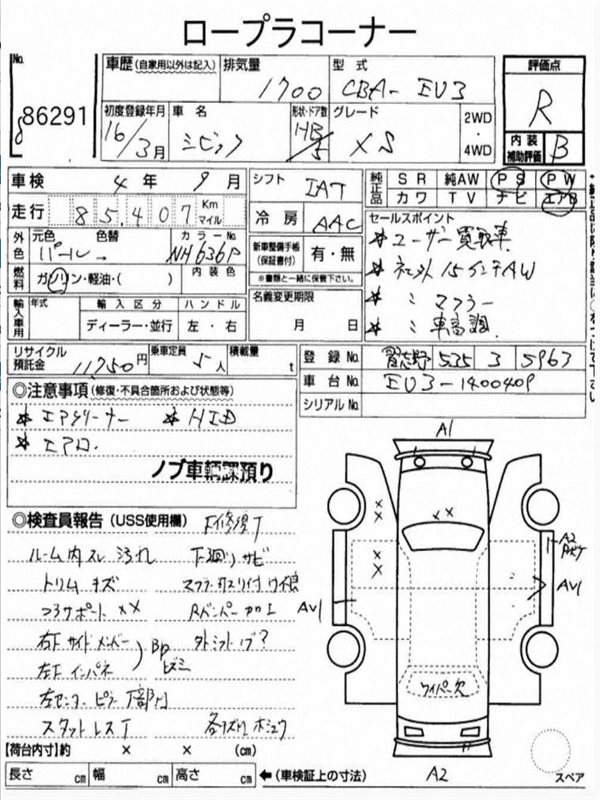 ロープラコーナー
No. 86291
車歴(自家用以外は記入) 排気量 1700 型式 CBA-EU3
初度登録年月 16/3月 車名 シビック 形状・ドア数 HB/5 グレード XS 2WD・4WD
評価点 R
内装補助評価 B
車検 4年 9月
走行 85,407 Km マイル
シフト IAT
冷房 AAC
純正品 SR 純AW PS PW
カワ TV ナビ エアB
外色 元色 パール 色替 カラーNo. NH636P
燃料 ガソリン・軽油・( ) 内装色
新車整備手帳(保証書付) 有・無
※書類と一緒に保管下さい。
セールスポイント
* ユーザー買取車
* 社外15インチAW
* 〃 マフラー
* 〃 車高調
輸入車用 年式 輸入区分 ディーラー・並行 ハンドル 左・右
名義変更期限 月 日
リサイクル預託金 11750円 乗車定員 5人 積載量 t
登録No. 習志野 535 ろ 5963
車台No. EU3-1400409
シリアルNo.
◎注意事項(修復・不具合箇所および状態等)
* エアクリーナー * HID
* エアロ.
ノブ車輌課預り
◎検査員報告(USS使用欄) F修理T
ルーム内スレ 汚れ 下廻りサビ
トリムキズ
コアサポート XX Rバンパー加工
右F サイドメンバー
左F インパネ
左センターピラー下部
スタットレスT
A1
A2
AV1
AV1
A2
ワイパー欠
A2
スペア
【荷台内寸】約 × × (cm)
長さ cm 幅 cm 高さ cm ←(車検証上の寸法)